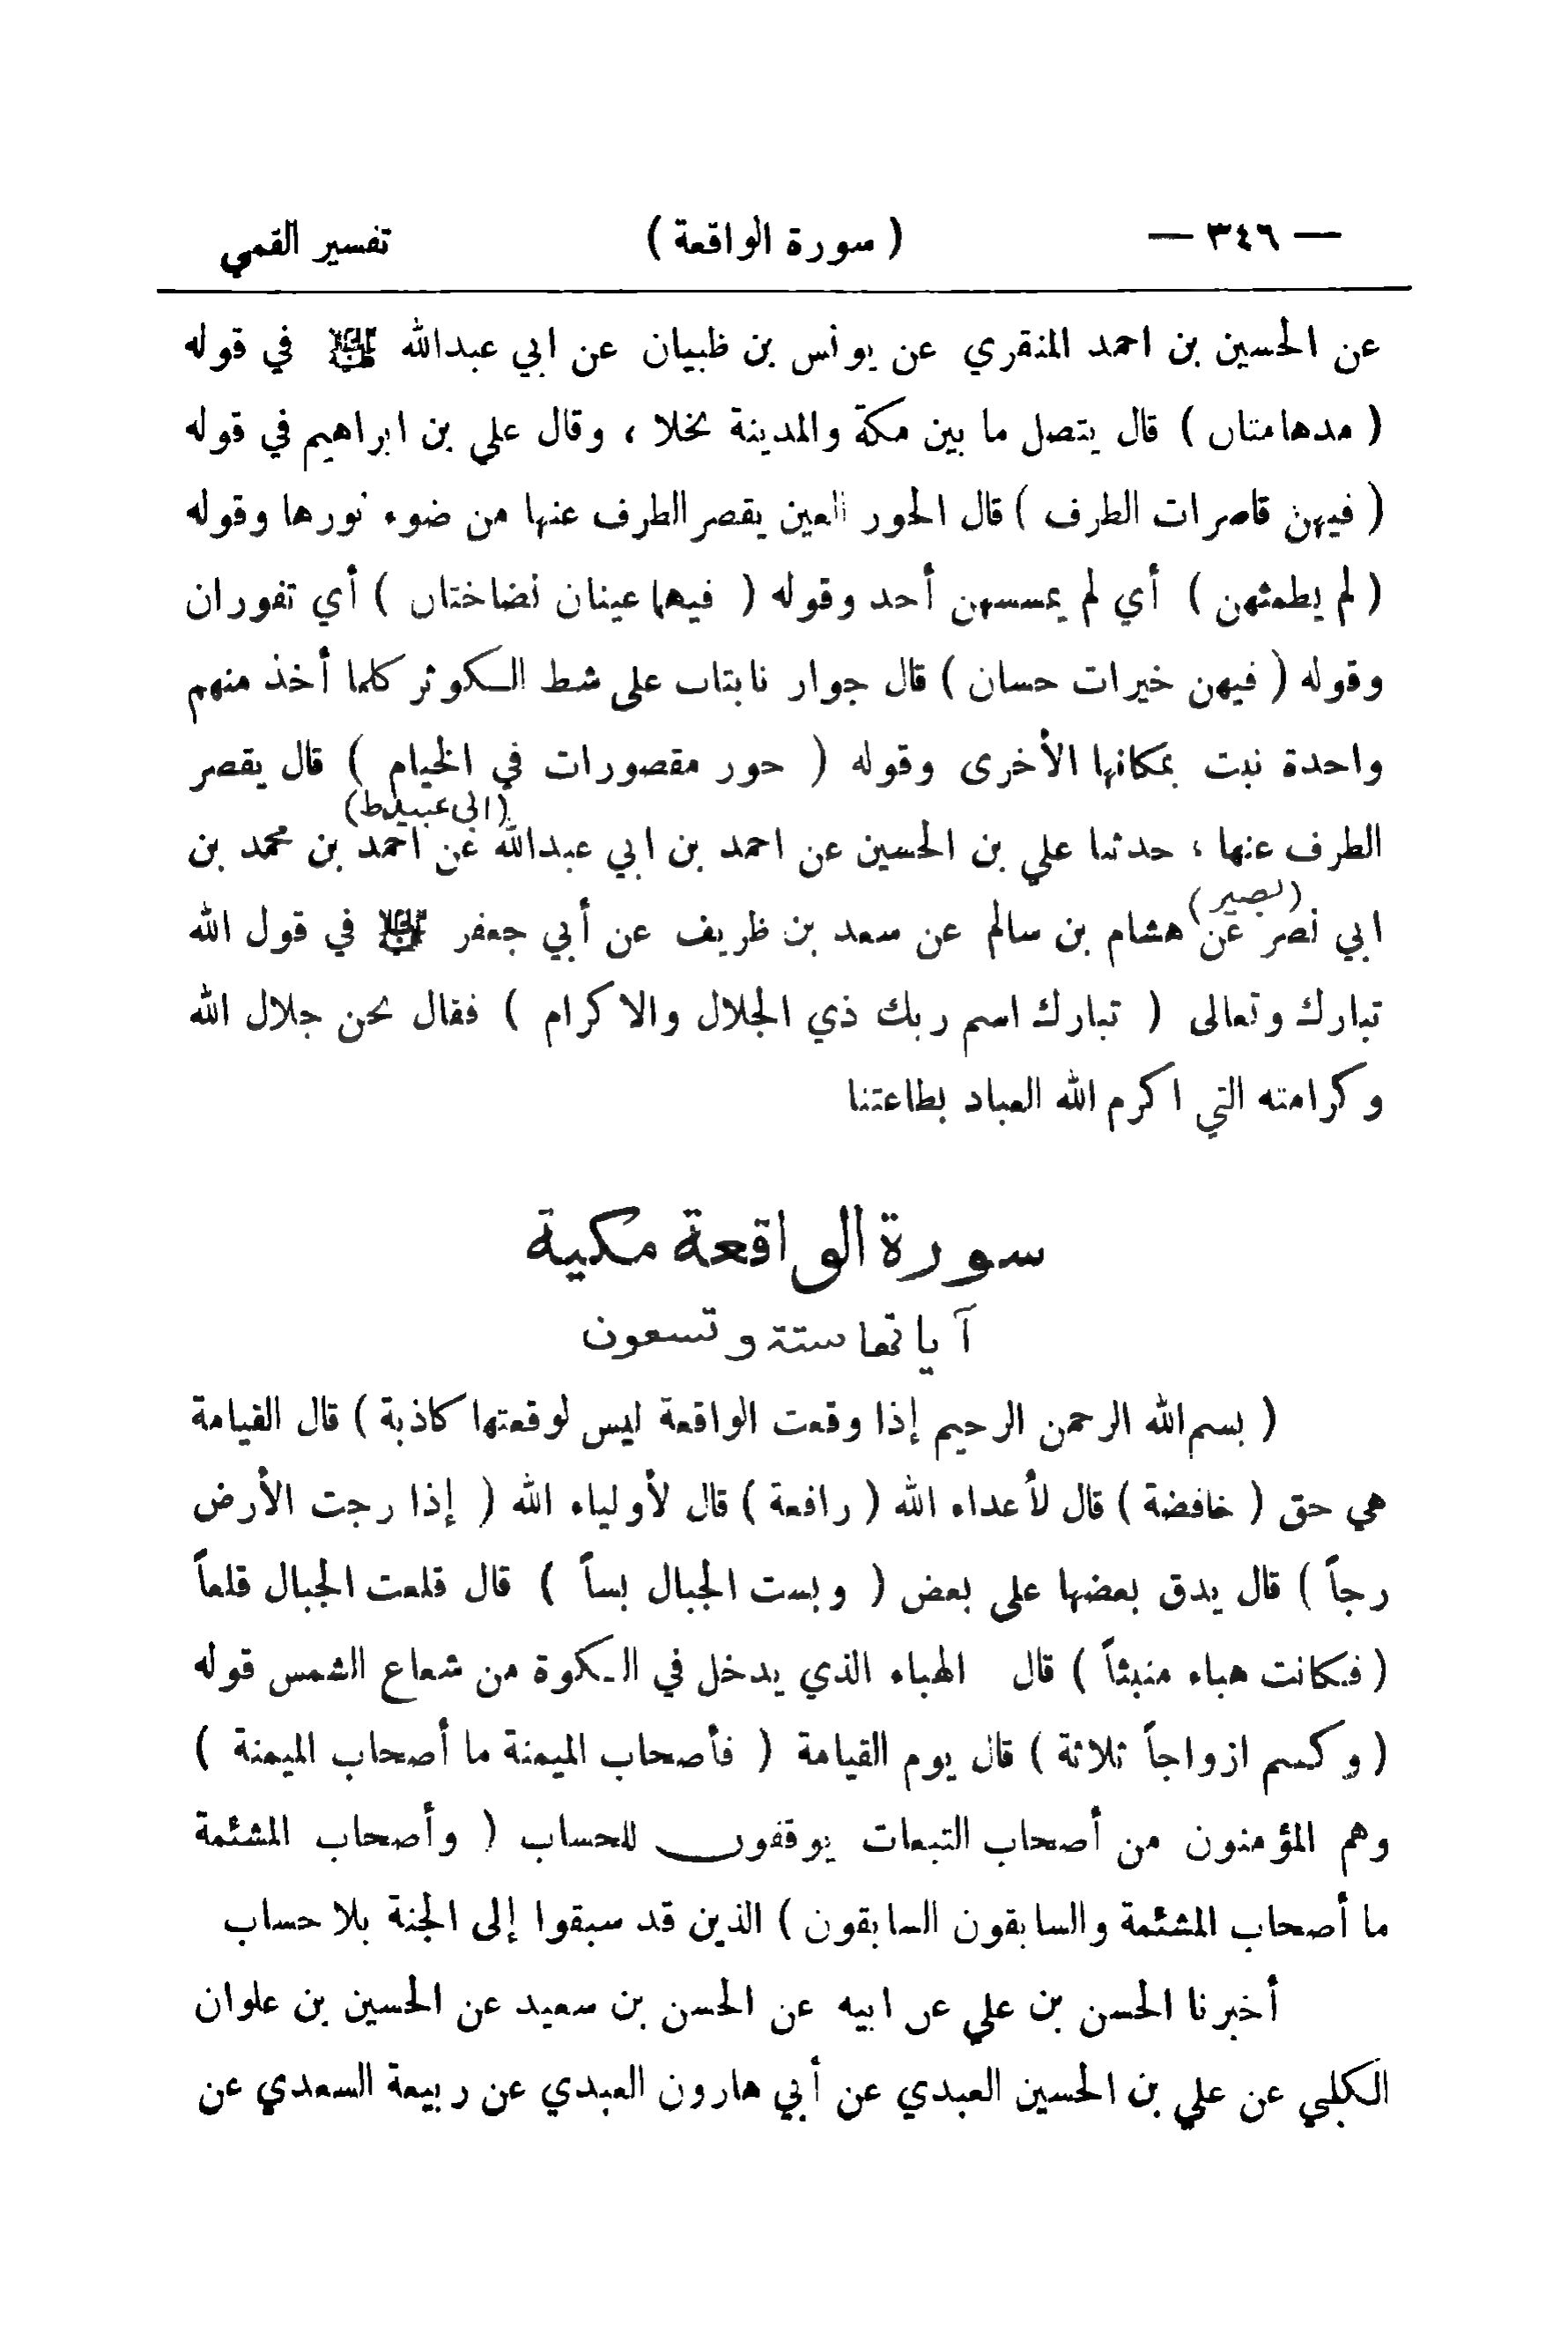 — ٣٤٦ — ( سورة الواقعة ) تفسير القمي
عن الحسين بن احمد المنقري عن يونس بن ظبيان عن ابي عبدالله عليه السلام في قوله
( مدهامتان ) قال يتصل ما بين مكة والمدينة نخلا ، وقال علي بن ابراهيم في قوله
( فيهن قاصرات الطرف ) قال الحور العين يقصر الطرف عنها من ضوء نورها وقوله
( لم يطمثهن ) أي لم يمسسهن أحد وقوله ( فيهما عينان نضاختان ) أي تفوران
وقوله ( فيهن خيرات حسان ) قال جوار نابتات على شط الكوثر كلما أخذ منهم
واحدة نبت بمكانها الأخرى وقوله ( حور مقصورات في الخيام ) قال يقصر
(ابي عبيد ط)
الطرف عنها ، حدثنا علي بن الحسين عن احمد بن ابي عبدالله عن احمد بن محمد بن
(بصير)
ابي نصر عن هشام بن سالم عن سعد بن ظريف عن أبي جعفر عليه السلام في قول الله
تبارك وتعالى ( تبارك اسم ربك ذي الجلال والاكرام ) فقال نحن جلال الله
وكرامته التي اكرم الله العباد بطاعتنا
سورة الواقعة مكية
آياتها ستة وتسعون
( بسم الله الرحمن الرحيم إذا وقعت الواقعة ليس لوقعتها كاذبة ) قال القيامة
هي حق ( خافضة ) قال لأعداء الله ( رافعة ) قال لأولياء الله ( إذا رجت الأرض
رجاً ) قال يدق بعضها على بعض ( وبست الجبال بساً ) قال قلعت الجبال قلعاً
( فكانت هباء منبثاً ) قال الهباء الذي يدخل في الكوة من شعاع الشمس قوله
( وكنتم ازواجاً ثلاثة ) قال يوم القيامة ( فأصحاب الميمنة ما أصحاب الميمنة )
وهم المؤمنون من أصحاب التبعات يوقفون للحساب ( وأصحاب المشئمة
ما أصحاب المشئمة والسابقون السابقون ) الذين قد سبقوا إلى الجنة بلا حساب
أخبرنا الحسن بن علي عن ابيه عن الحسن بن سعيد عن الحسين بن علوان
الكلبي عن علي بن الحسين العبدي عن أبي هارون العبدي عن ربيعة السعدي عن